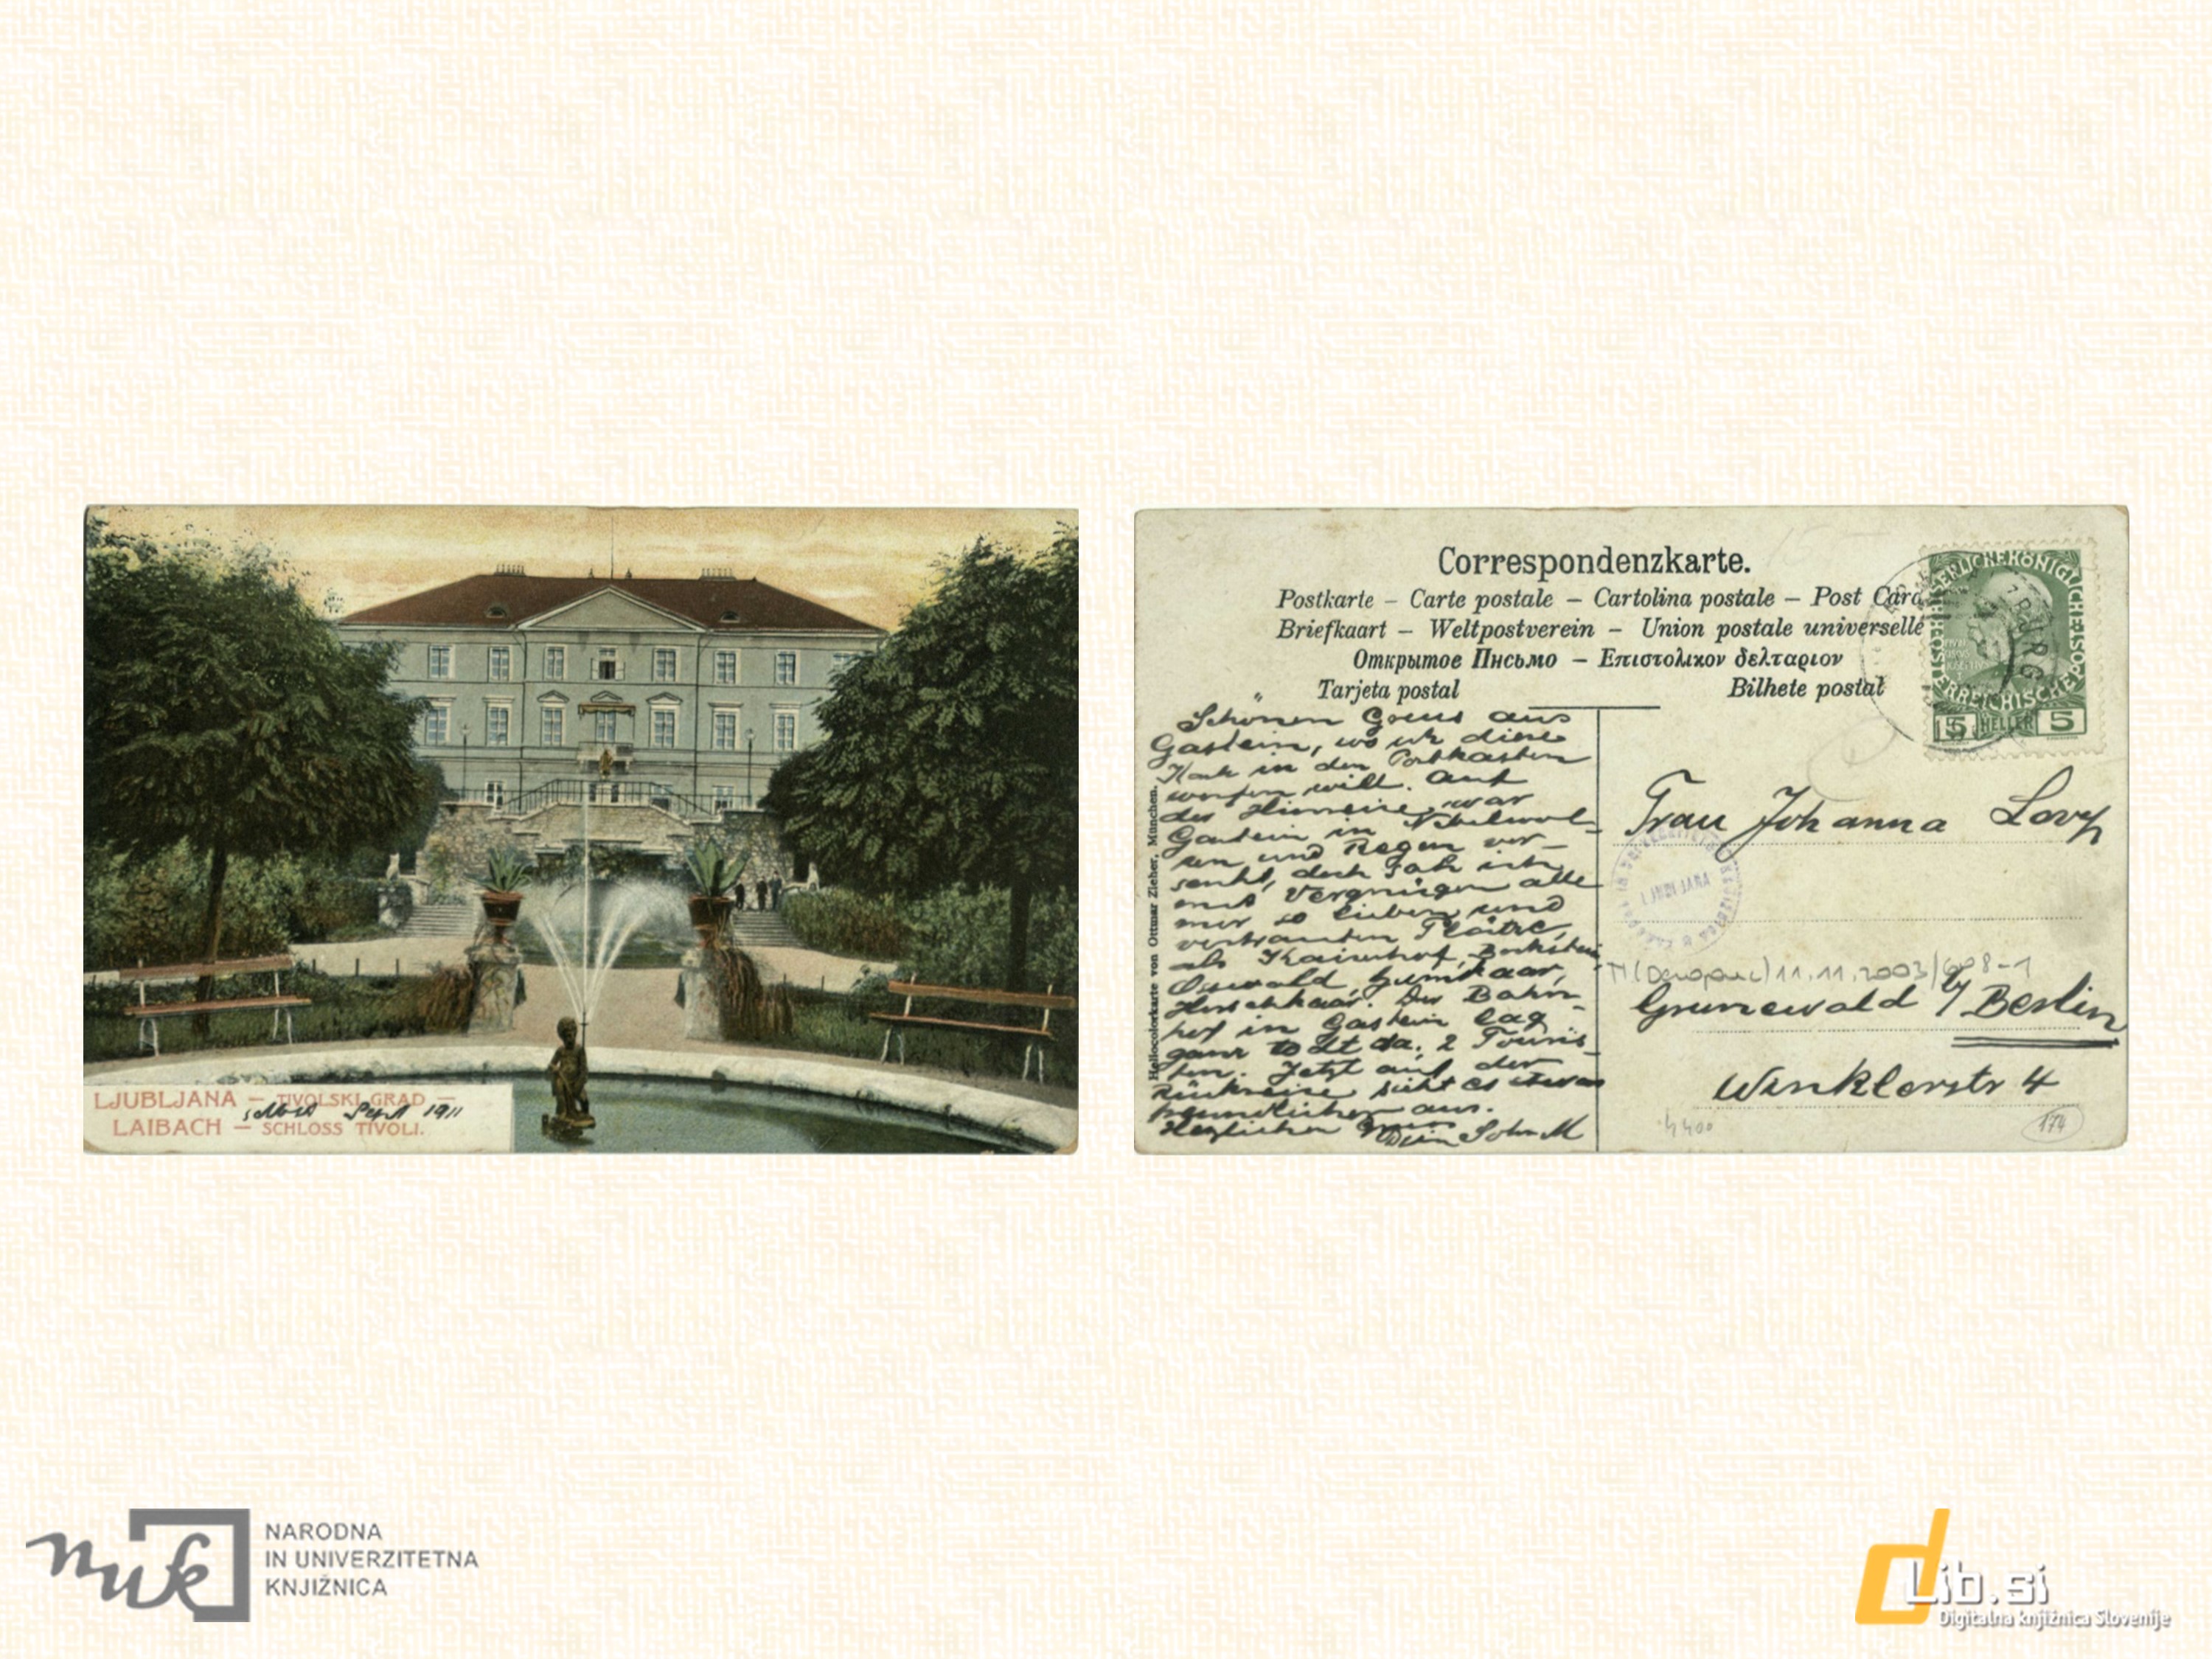 LJUBLJANA – TIVOLSKI GRAD –
Sept 1911
LAIBACH – SCHLOSS TIVOLI.
Correspondenzkarte.
Postkarte – Carte postale – Cartolina postale – Post Card
Briefkaart – Weltpostverein – Union postale universelle
Открытое Письмо – Επιστολικον δελταριον
Tarjeta postal Bilhete postal
Heliocolorkarte von Ottmar Zieher, München.
5 HELLER 5
Schönen Gruss aus
Gastein, wo ich diese
Karte in den Postkasten
werfen will. Auf
der Hinreise war
Gastein in
und Regen ver-
senkt, doch sah ich
mit Vergnügen alle
mir so lieben und
vertrauten Plätze,
als Kaiserhof, Böckstein
Der Bahn-
hof in Gastein lag
ganz da, 2 Touris-
ten. Jetzt auf der
Rückreise sieht es etwas
freundlicher aus.
Herzlichen Gruss
Dein Sohn M
Frau Johanna Levy
LJUBLJANA
11.11.2003/608-1
Grunewald b/ Berlin
Winklerstr 4
4400
174
nuk
NARODNA
IN UNIVERZITETNA
KNJIŽNICA
dLib.si
Digitalna knjižnica Slovenije